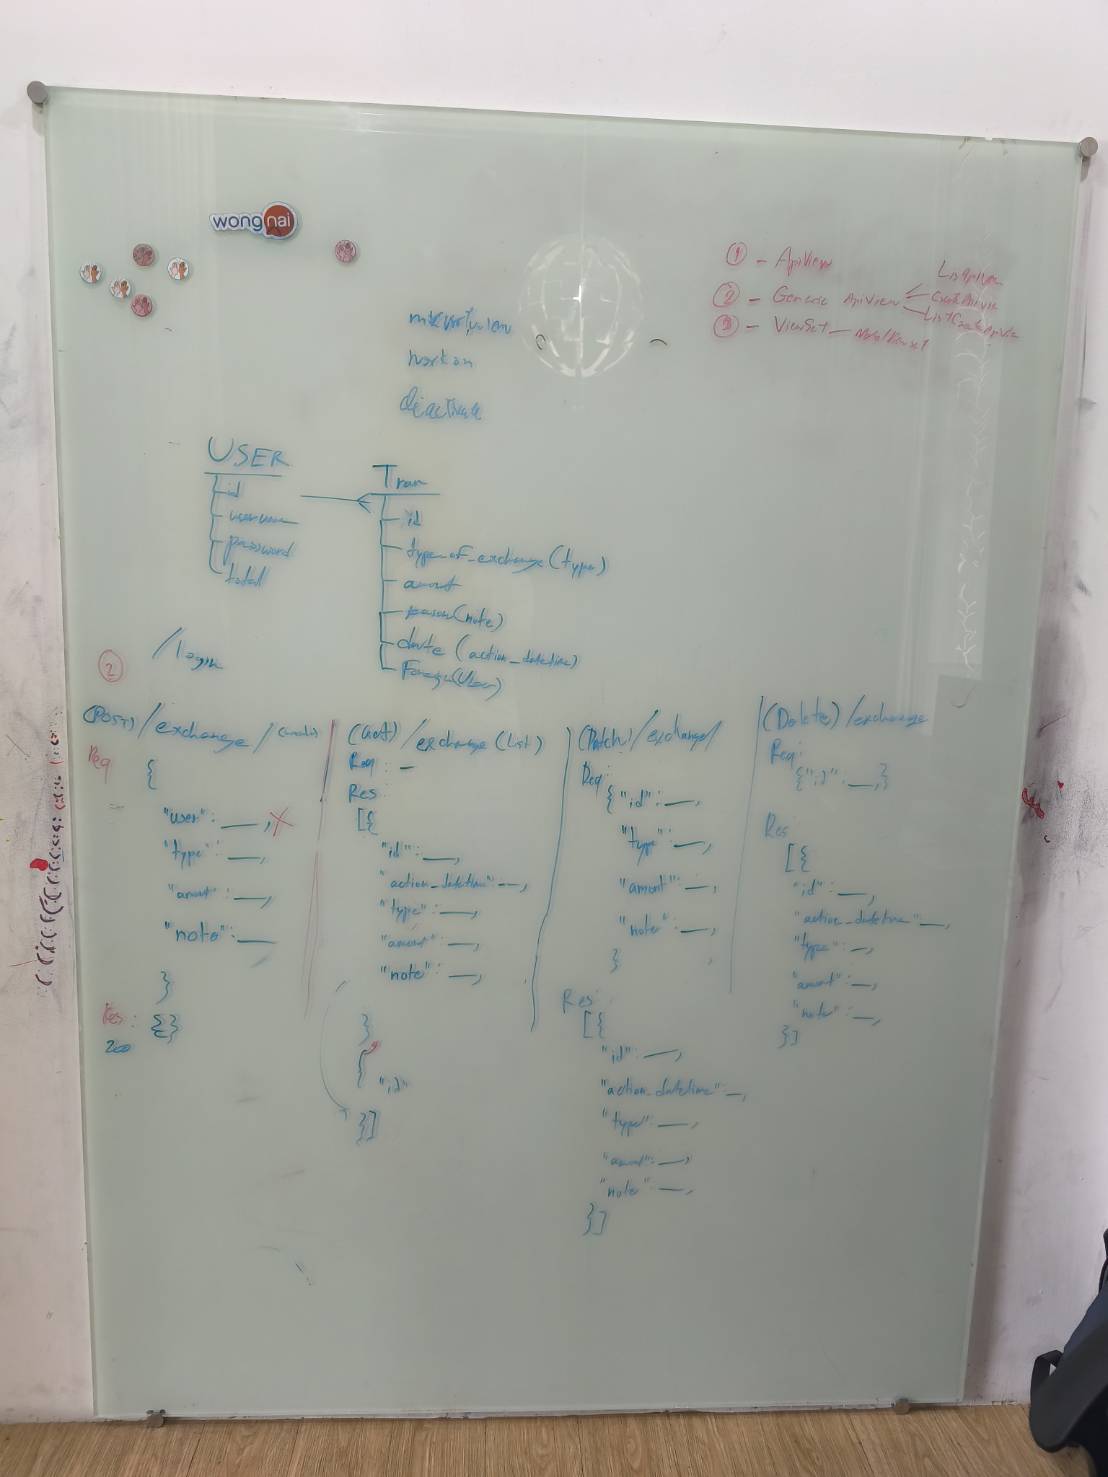 wongnai
① - ApiView
② - Generic ApiView
ListCreateApiView
③ - ViewSet
workon
deactivate
USER
id
username
password
total
Tran
id
type_of_exchange (type)
amount
(note)
date (action_datetime)
(User)
/login
②
(POST) /exchange/
Req
{
"user": __, X
"type": __,
"amout": __,
"note": __
}
Res:
200
{}
(Get) /exchange (List)
Req: -
Res:
[{
"id": __,
"action_datetime" __,
"type": __,
"amout": __,
"note": __,
}
{
"id"
}]
(Patch) /exchange/
Req:
{"id": __,
"type": __,
"amont": __,
"note": __,
}
Res:
[{
"id": __,
"action_datetime" __,
"type": __,
"amout": __,
"note": __,
}]
(Delete) /exchange
Req:
{"id": __,}
Res
[{
"id": __,
"action_datetime" __,
"type": __,
"amont": __,
"note": __,
}]